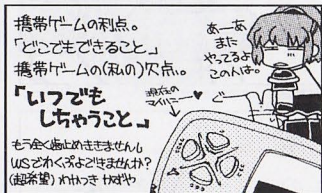 携帯ゲームの利点。
「どこでもできること」
携帯ゲームの(私の)欠点。
『いつでも
しちゃうこと』
もう全く歯止めききませんし
WSでわくぷよできませんか?
(超希望) わかつき かずや
あーあ
また
やってるよ
この人は。
現在の
マイハニー